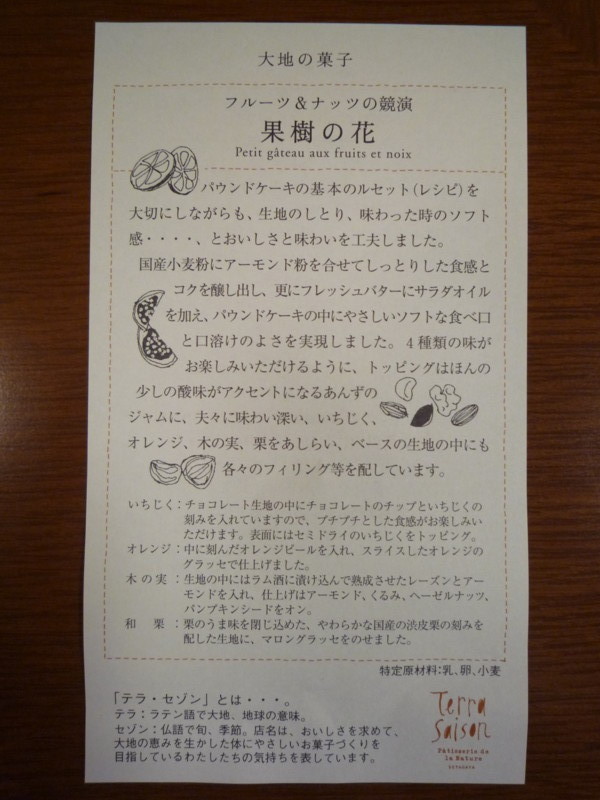 大地の菓子
フルーツ＆ナッツの競演
果樹の花
Petit gâteau aux fruits et noix
パウンドケーキの基本のルセット（レシピ）を
大切にしながらも、生地のしとり、味わった時のソフト
感・・・・、とおいしさと味わいを工夫しました。
国産小麦粉にアーモンド粉を合せてしっとりした食感と
コクを醸し出し、更にフレッシュバターにサラダオイル
を加え、パウンドケーキの中にやさしいソフトな食べ口
と口溶けのよさを実現しました。４種類の味が
お楽しみいただけるように、トッピングはほんの
少しの酸味がアクセントになるあんずの
ジャムに、夫々に味わい深い、いちじく、
オレンジ、木の実、栗をあしらい、ベースの生地の中にも
各々のフィリング等を配しています。
いちじく：チョコレート生地の中にチョコレートのチップといちじくの
刻みを入れていますので、プチプチとした食感がお楽しみい
ただけます。表面にはセミドライのいちじくをトッピング。
オレンジ：中に刻んだオレンジピールを入れ、スライスしたオレンジの
グラッセで仕上げました。
木の実：生地の中にはラム酒に漬け込んで熟成させたレーズンとアー
モンドを入れ、仕上げはアーモンド、くるみ、ヘーゼルナッツ、
パンプキンシードをオン。
和栗：栗のうま味を閉じ込めた、やわらかな国産の渋皮栗の刻みを
配した生地に、マロングラッセをのせました。
特定原材料：乳、卵、小麦
「テラ・セゾン」とは・・・。
テラ：ラテン語で大地、地球の意味。
セゾン：仏語で旬、季節。店名は、おいしさを求めて、
大地の恵みを生かした体にやさしいお菓子づくりを
目指しているわたしたちの気持ちを表しています。
Terra
Saison
Pâtisserie de
la Nature